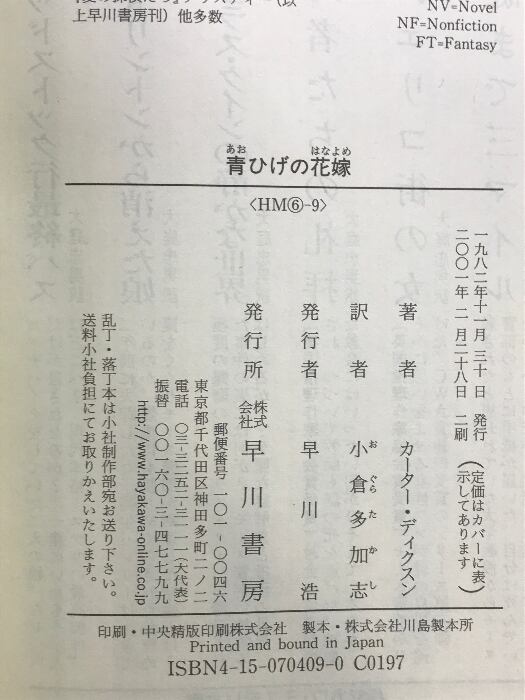 上早川書房刊）他多数
NV=Novel
NF=Nonfiction
FT=Fantasy
青ひげの花嫁
あお
はなよめ
〈HM⑥-9〉
一九八二年十一月三十日　発行
二〇〇一年二月二十八日　二刷
（定価はカバーに表
示してあります）
著者　カーター・ディクスン
訳者　小倉多加志
お　ぐら　た　か　し
発行者　早川　浩
発行所　株式会社　早川書房
郵便番号　一〇一-〇〇四六
東京都千代田区神田多町二ノ二
電話　〇三-三二五二-三一一一（大代表）
振替　〇〇一六〇-三-四七七九九
http://www.hayakawa-online.co.jp
乱丁・落丁本は小社制作部宛お送り下さい。
送料小社負担にてお取りかえいたします。
印刷・中央精版印刷株式会社　製本・株式会社川島製本所
Printed and bound in Japan
ISBN4-15-070409-0 C0197